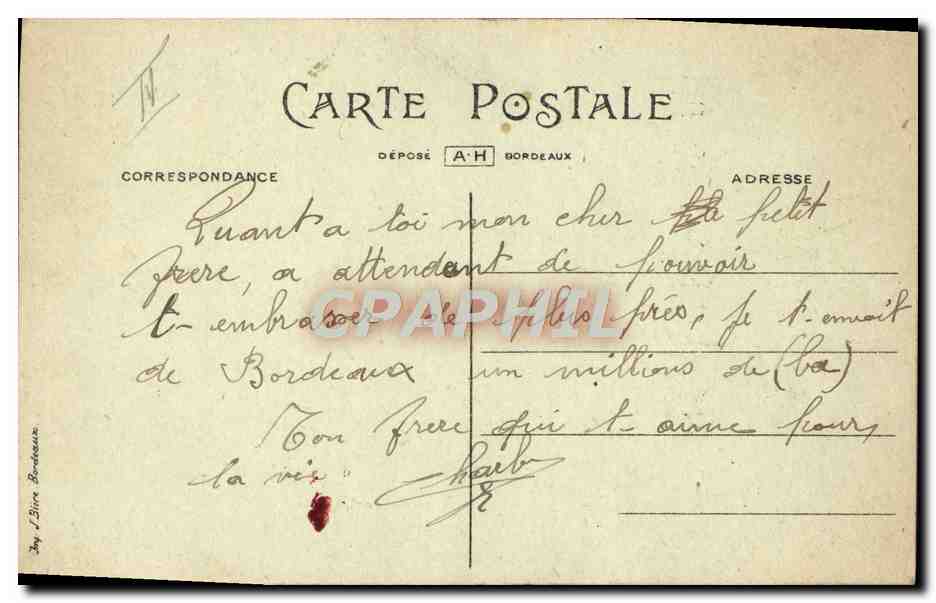 IV
CARTE POSTALE
DÉPOSÉ A·H BORDEAUX
CORRESPONDANCE
ADRESSE
Quant a toi mon cher petit
frere, a attendant de pouvoir
t-embrasser de plus près, je t-envoit
de Bordeaux un millions de (ba)
Ton frere qui t-aime pour
la vie.
CPAPHIL
Imp. J. Bière Bordeaux